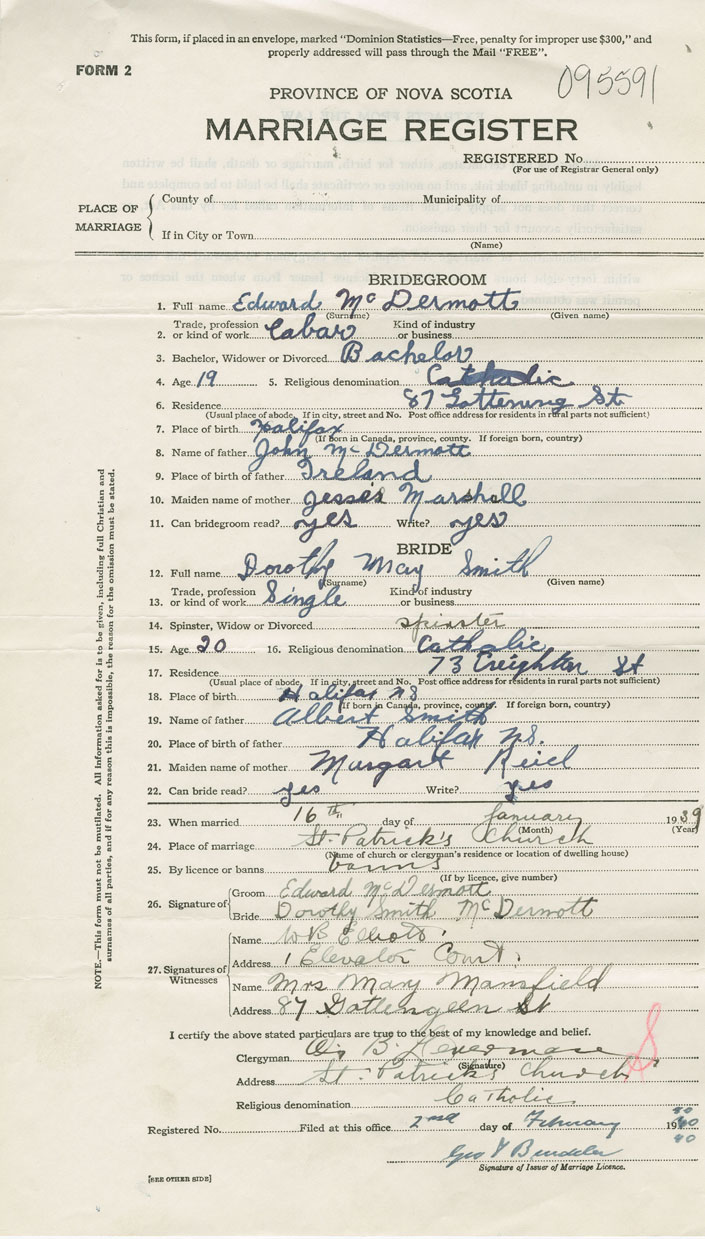 This form, if placed in an envelope, marked “Dominion Statistics—Free, penalty for improper use $300,” and
properly addressed will pass through the Mail “FREE”.
FORM 2
095591
PROVINCE OF NOVA SCOTIA
MARRIAGE REGISTER
REGISTERED No.
(For use of Registrar General only)
PLACE OF MARRIAGE
County of Municipality of
If in City or Town
(Name)
BRIDEGROOM
1. Full name Edward McDermott
(Surname) (Given name)
2. Trade, profession or kind of work Labar Kind of industry or business
3. Bachelor, Widower or Divorced Bachelor
4. Age 19 5. Religious denomination Catholic
6. Residence 87 Gottening St
(Usual place of abode. If in city, street and No. Post office address for residents in rural parts not sufficient)
7. Place of birth Halifax
(If born in Canada, province, county. If foreign born, country)
8. Name of father John McDermott
9. Place of birth of father Ireland
10. Maiden name of mother Jesses Marshall
11. Can bridegroom read? yes Write? yes
BRIDE
12. Full name Dorothy May Smith
(Surname) (Given name)
13. Trade, profession or kind of work Single Kind of industry or business
14. Spinster, Widow or Divorced spinster
15. Age 20 16. Religious denomination Catholic
17. Residence 73 Creighter St
(Usual place of abode. If in city, street and No. Post office address for residents in rural parts not sufficient)
18. Place of birth Halifax NS
(If born in Canada, province, county. If foreign born, country)
19. Name of father Albert Smith
20. Place of birth of father Halifax NS.
21. Maiden name of mother Margart
22. Can bride read? yes Write? yes
23. When married 16th day of January 1939
(Month) (Year)
24. Place of marriage St. Patrick's Church
(Name of church or clergyman's residence or location of dwelling house)
25. By licence or banns banns
(If by licence, give number)
26. Signature of
Groom Edward McDermott
Bride Dorothy Smith McDermott
27. Signatures of Witnesses
Name W B Elliott
Address 1 Elevator Court.
Name Mrs Mary Mansfield
Address 87 Gottengeen St
I certify the above stated particulars are true to the best of my knowledge and belief.
Clergyman
(Signature)
Address St. Patrick's Church
Religious denomination Catholic
Registered No. Filed at this office 2nd day of February 1940
40
40
Geo
Signature of Issuer of Marriage Licence.
[SEE OTHER SIDE]
NOTE.—This form must not be mutilated. All information asked for is to be given, including full Christian and
surnames of all parties, and if for any reason this is impossible, the reason for the omission must be stated.